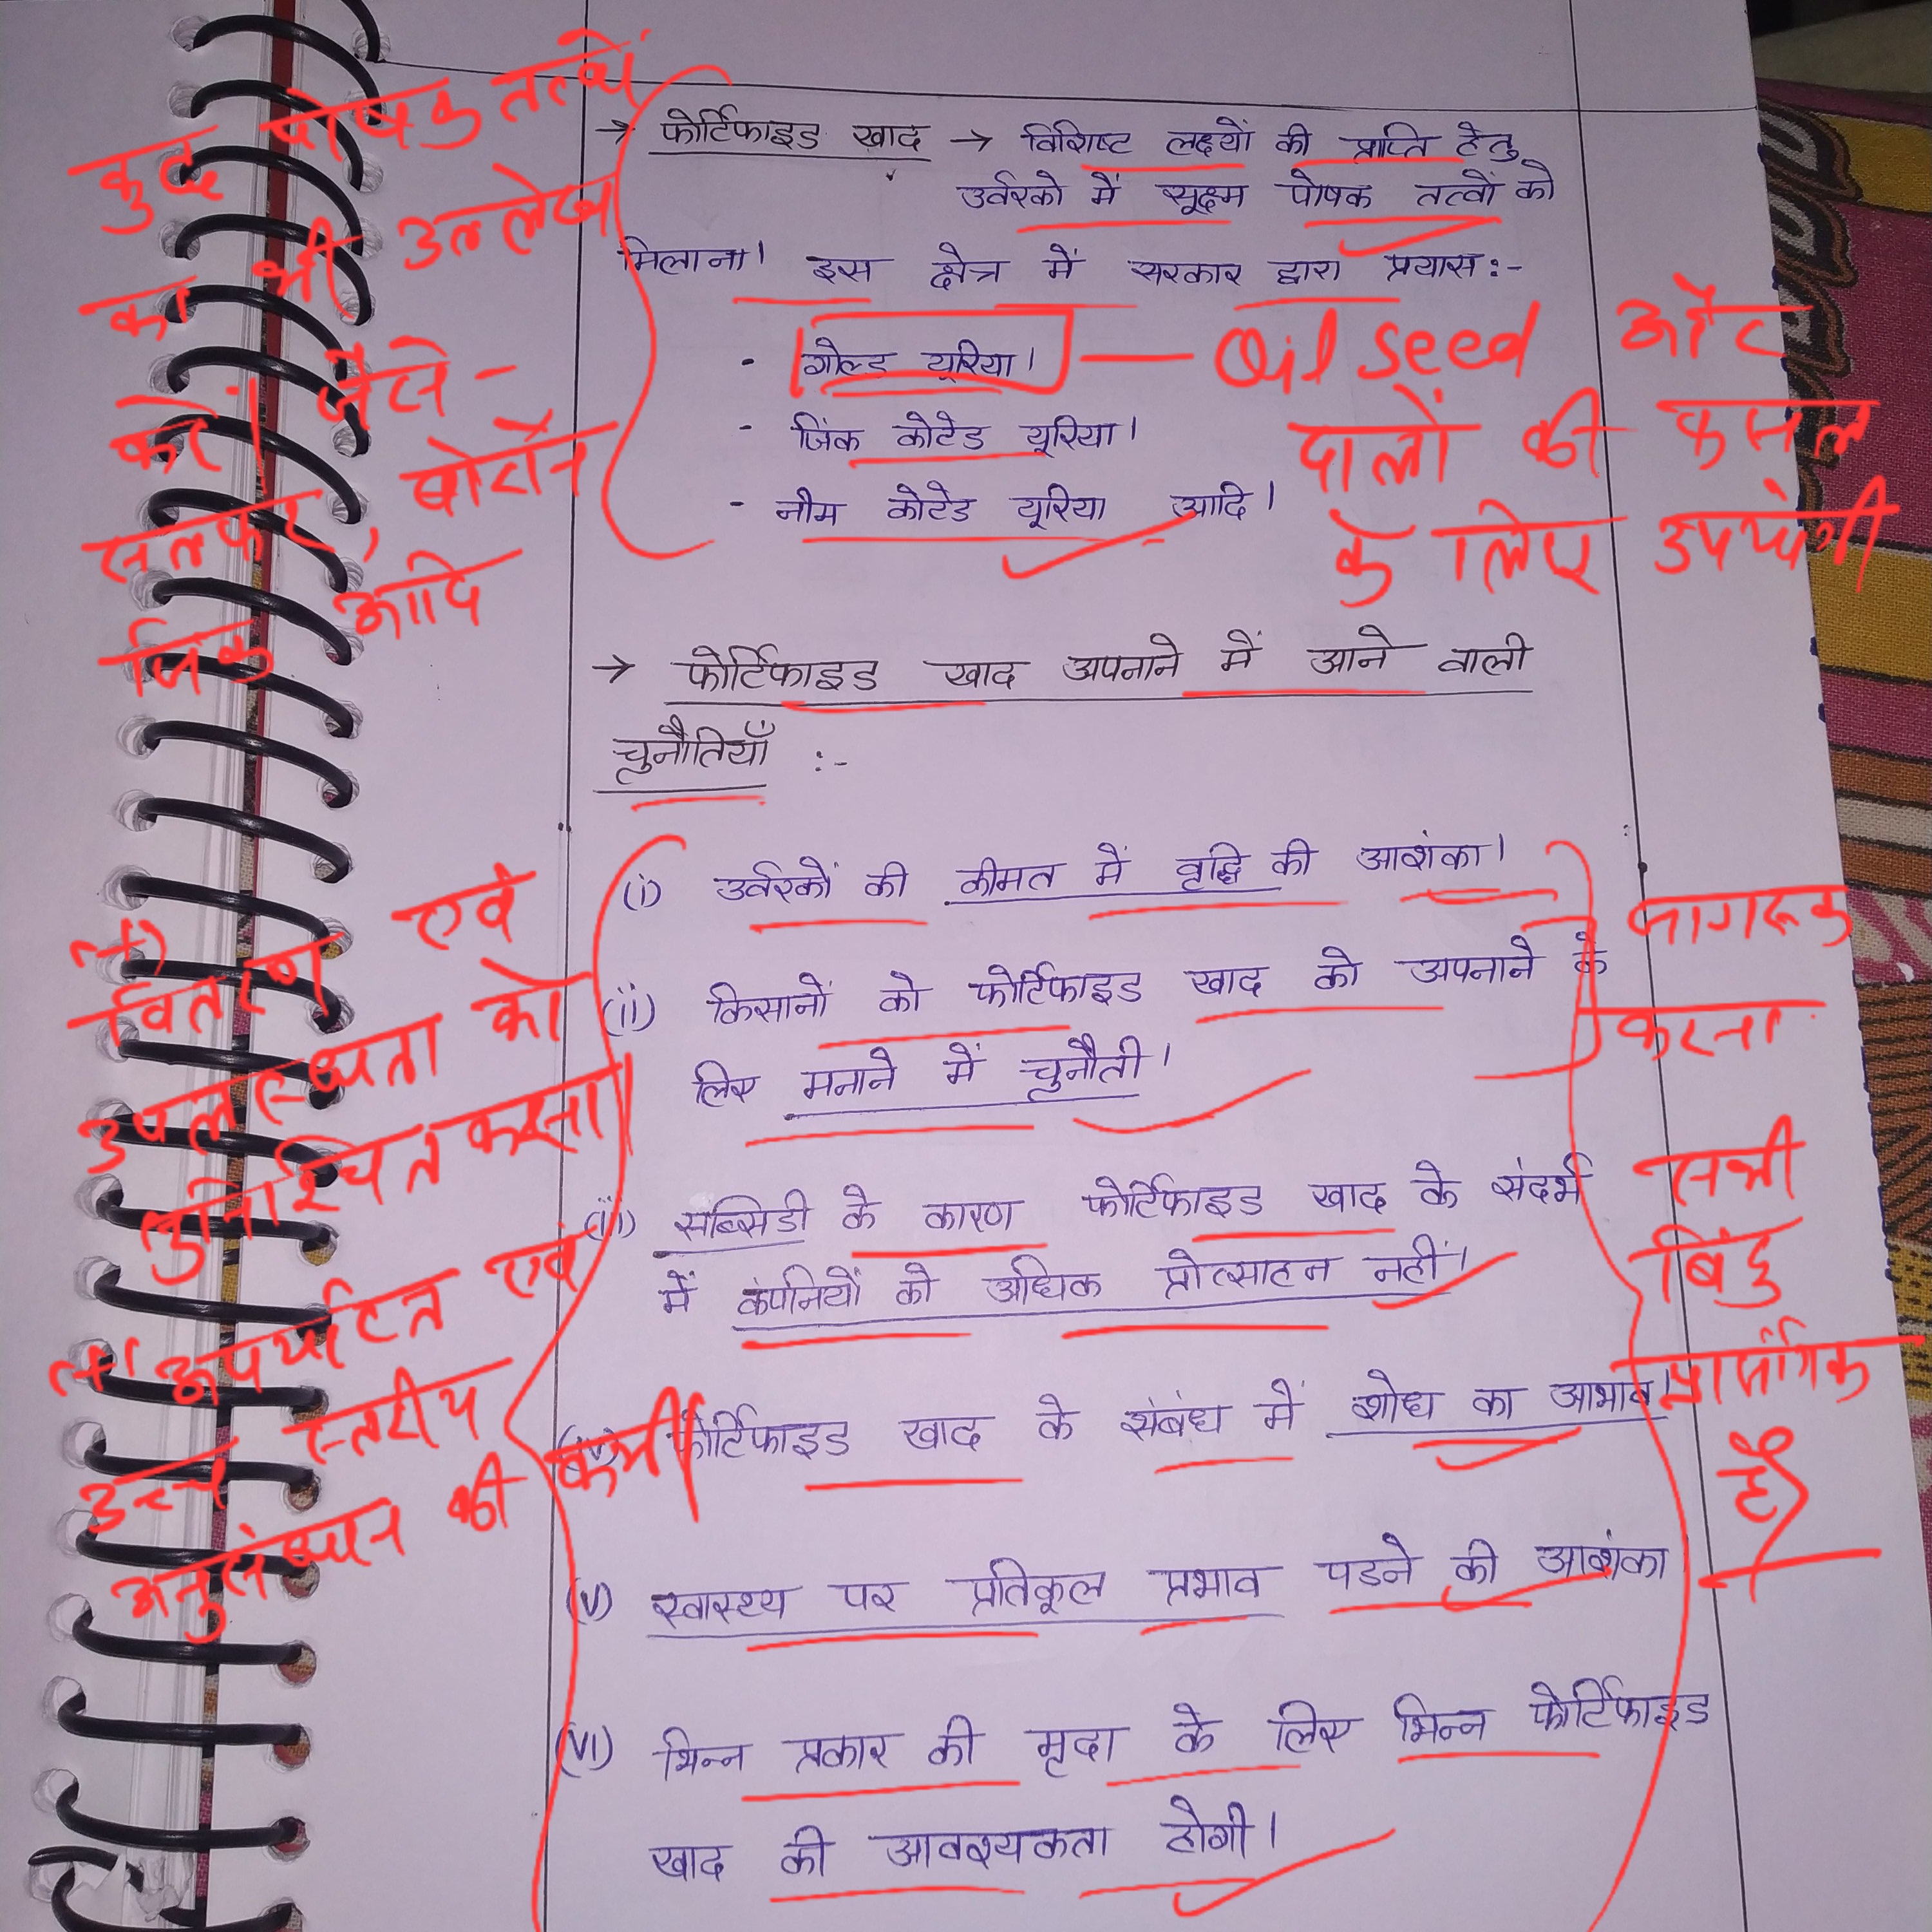 → फोर्टिफाइड खाद → विशिष्ट लक्ष्यों की प्राप्ति हेतु
उर्वरको में सूक्ष्म पोषक तत्वों को
मिलाना। इस क्षेत्र में सरकार द्वारा प्रयास:-
- गोल्ड यूरिया।
- जिंक कोटेड यूरिया।
- नीम कोटेड यूरिया आदि।
कुछ पोषक तत्वों
का भी उल्लेख
करें। जैसे-
सल्फर, बोरॉन
जिंक आदि
— Oil seed और
दालों की फसल
के लिए उपयोगी
→ फोर्टिफाइड खाद अपनाने में आने वाली
चुनौतियाँ :-
(i) उर्वरकों की कीमत में वृद्धि की आशंका।
(ii) किसानों को फोर्टिफाइड खाद को अपनाने के
लिए मनाने में चुनौती।
(iii) सब्सिडी के कारण फोर्टिफाइड खाद के संदर्भ
में कंपनियों को अधिक प्रोत्साहन नहीं।
(iv) फोर्टिफाइड खाद के संबंध में शोध का आभाव।
(v) स्वास्थ्य पर प्रतिकूल प्रभाव पडने की आशंका
(vi) भिन्न प्रकार की मृदा के लिए भिन्न फोर्टिफाइड
खाद की आवश्यकता होगी।
(+)
वितरण एवं
उपलब्धता को
सुनिश्चित करना
(+) अपर्याप्त एवं
उच्च स्तरीय
अनुसंधान की कमी
जागरूक
करना
सभी
बिंदु
प्रासंगिक
हैं